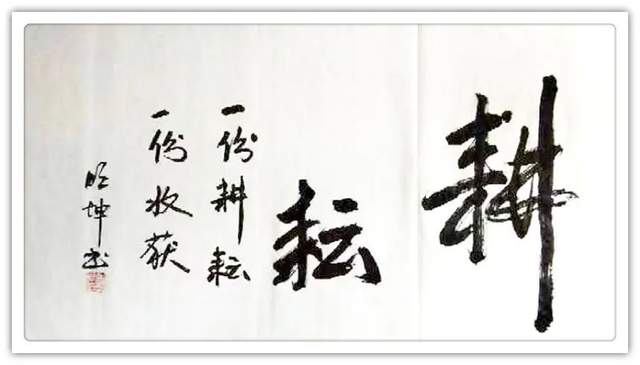 耕
耘
一份耕耘
一份收获
旺坤书